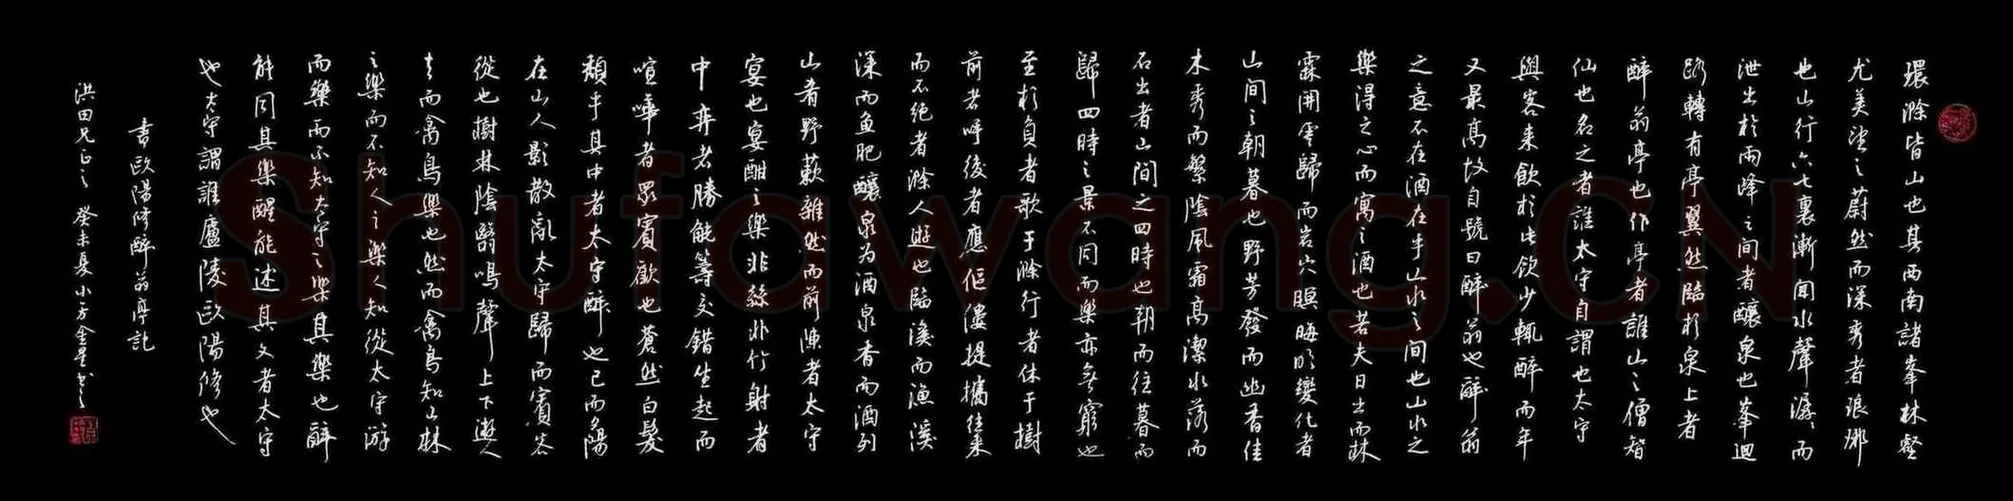 環滁皆山也其西南諸峯林壑
尤美望之蔚然而深秀者琅琊
也山行六七裏漸聞水聲潺潺而
泄出於兩峰之間者釀泉也峯迴
路轉有亭翼然臨於泉上者
醉翁亭也作亭者誰山之僧智
仙也名之者誰太守自謂也太守
與客來飲於此飲少輒醉而年
又最高故自號曰醉翁也醉翁
之意不在酒在乎山水之間也山水之
樂得之心而寓之酒也若夫日出而林
霏開雲歸而岩穴暝晦明變化者
山間之朝暮也野芳發而幽香佳
木秀而繁陰風霜高潔水落而
石出者山間之四時也朝而往暮而
歸四時之景不同而樂亦無窮也
至於負者歌于滁行者休于樹
前者呼後者應傴僂提攜往來
而不絕者滁人遊也臨溪而漁溪
深而魚肥釀泉為酒泉香而酒列
山肴野蔌雜然而前陳者太守
宴也宴酣之樂非絲非竹射者
中弈者勝觥籌交錯坐起而
喧嘩者眾賓歡也蒼然白髮
頹乎其中者太守醉也已而夕陽
在山人影散亂太守歸而賓客
從也樹林陰翳鳴聲上下遊人
去而禽鳥樂也然而禽鳥知山林
之樂而不知人之樂人知從太守游
而樂而不知太守之樂其樂也醉
能同其樂醒能述其文者太守
也太守謂誰廬陵歐陽修也
書歐陽修醉翁亭記
洪田兄正之 癸未夏小方金星書之
Shufawang.CN